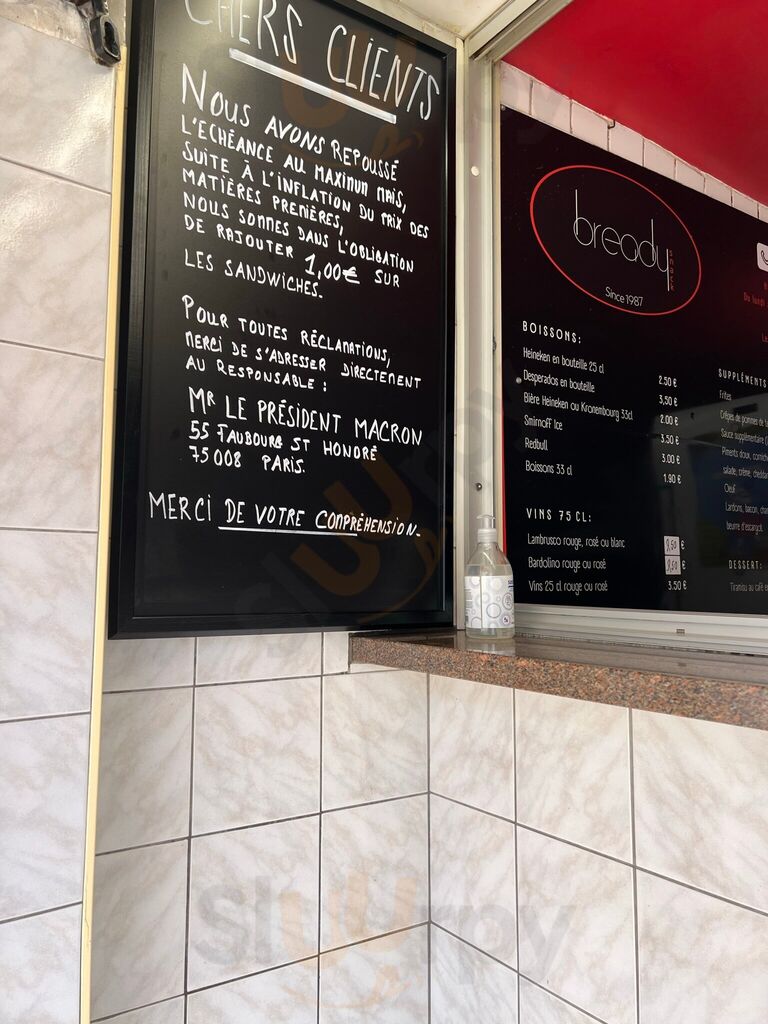 CHERS CLIENTS
NOUS AVONS REPOUSSÉ
L'ECHÉANCE AU MAXIMUM MAIS,
SUITE À L'INFLATION DU PRIX DES
MATIÈRES PREMIÈRES,
NOUS SOMMES DANS L'OBLIGATION
DE RAJOUTER 1,00€ SUR
LES SANDWICHES.
POUR TOUTES RÉCLAMATIONS,
MERCI DE S'ADRESSER DIRECTEMENT
AU RESPONSABLE :
MR LE PRÉSIDENT MACRON
55 FAUBOURG ST HONORÉ
75008 PARIS.
MERCI DE VOTRE COMPRÉHENSION.
bready
snack
Since 1987
Du lundi
BOISSONS:
Heineken en bouteille 25 cl 2.50 €
Desperados en bouteille 3,50 €
Bière Heineken ou Kronembourg 33cl 2.00 €
Smirnoff Ice 3.50 €
Redbull 3.00 €
Boissons 33 cl 1.90 €
VINS 75 CL:
Lambrusco rouge, rosé ou blanc 8,50 €
Bardolino rouge ou rosé 8,50 €
Vins 25 cl rouge ou rosé 3.50 €
SUPPLÉMENTS
Frites
Crêpes de pommes de
Sauce supplémentaire
Piments doux,
salade, crème,
Oeuf
Lardons, bacon,
beurre d'escargot.
DESSERT:
Tiramisu au café
Sluurpy